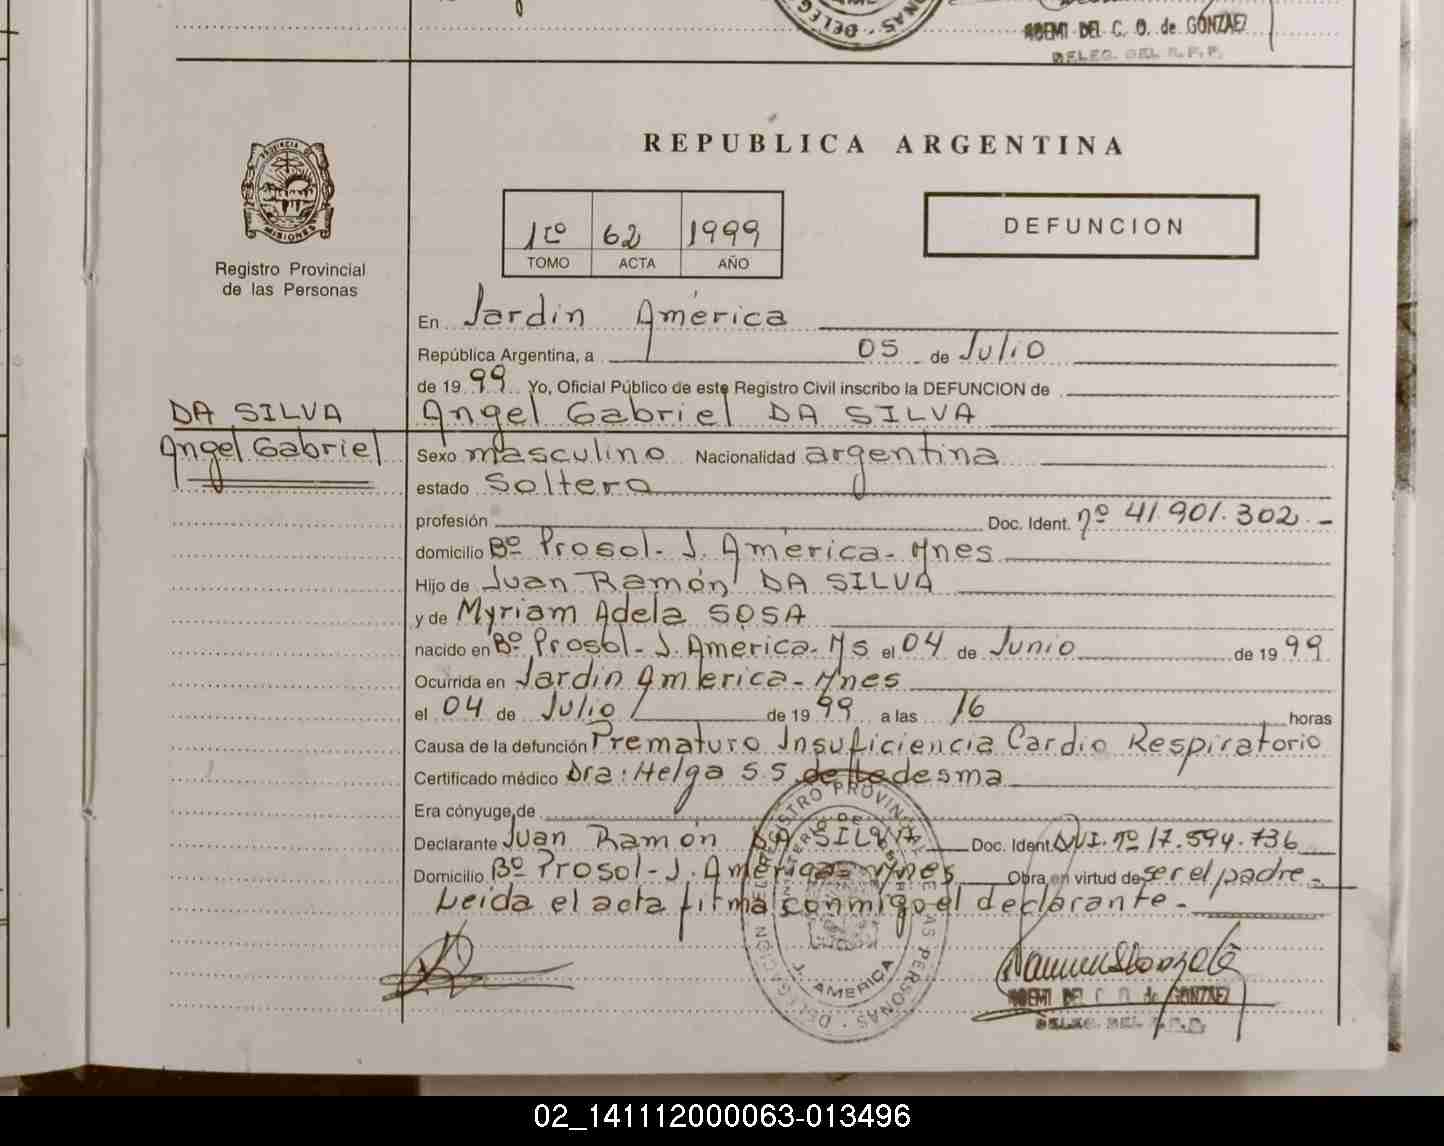 NOEMI DEL C. O. de GONZALEZ
DELEG. DEL R.P.P.
REPUBLICA ARGENTINA
PROVINCIA DE
MISIONES
Registro Provincial
de las Personas
1ro 62 1999
TOMO ACTA AÑO
DEFUNCION
En Jardín América
República Argentina, a 05 de Julio
de 1999 Yo, Oficial Público de este Registro Civil inscribo la DEFUNCION de
DA SILVA Angel Gabriel DA SILVA
Angel Gabriel Sexo masculino Nacionalidad argentina
estado Soltero
profesión Doc. Ident. nº 41.901.302.-
domicilio Bº Prosol- J. América- Mnes
Hijo de Juan Ramón DA SILVA
y de Myriam Adela SOSA
nacido en Bº Prosol- J. América- Ms el 04 de Junio de 1999
Ocurrida en Jardín América- Mnes
el 04 de Julio de 1999 a las 16 horas
Causa de la defunción Prematuro Insuficiencia Cardio Respiratorio
Certificado médico Dra: Helga S.S. de Ledesma
Era cónyuge de
Declarante Juan Ramón DA SILVA Doc. Ident. DNI. nº 17.594.736
Domicilio Bº Prosol- J. América- Mnes Obra en virtud de ser el padre.-
Leida el acta firma conmigo el declarante.-
J. AMERICA
NOEMI DEL C. O. de GONZALEZ
DELEG. DEL R.P.P.
02_141112000063-013496